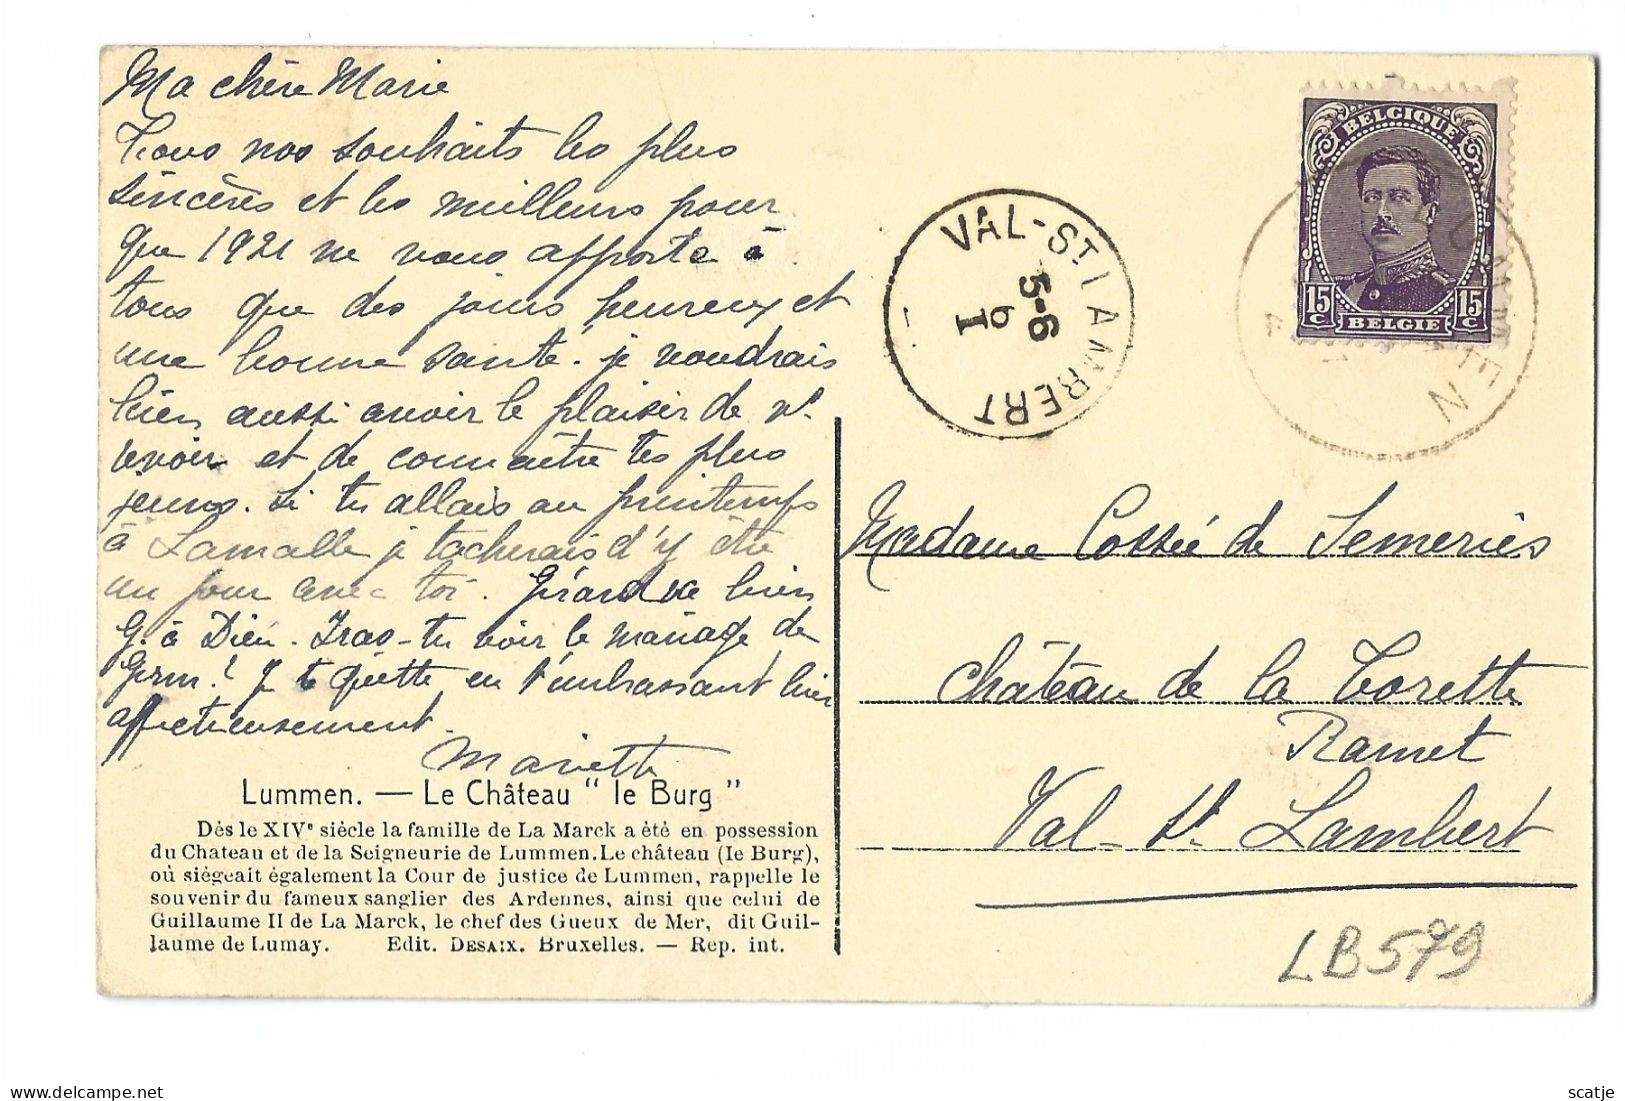 Ma chère Marie
Tous nos souhaits les plus
sincères et les meilleurs pour
que 1921 ne vous apporte à
tous que des jours heureux et
une bonne santé. je voudrais
bien aussi avoir le plaisir de
revoir et de connaître tes plus
jeunes. Si tu allais au printemps
à Lamalle je tacherais d'y être
un jour avec toi. Gérard va bien
G. à Dieu. Iras-tu voir le mariage de
Germ.? Je te quitte en t'embrassant bien
affectueusement.
Mariette
Lummen. — Le Château " le Burg "
Dès le XIVe siècle la famille de La Marck a été en possession
du Chateau et de la Seigneurie de Lummen. Le château (le Burg),
où siégeait également la Cour de justice de Lummen, rappelle le
souvenir du fameux sanglier des Ardennes, ainsi que celui de
Guillaume II de La Marck, le chef des Gueux de Mer, dit Guil-
laume de Lumay. Edit. DESAIX. Bruxelles. — Rep. int.
VAL-ST LAMBERT
5-6
6
I
BELGIQUE
15 C
15 C
BELGIE
LUMMEN
Madame Cossée de Semeries
Château de la Torette
Ramet
Val-St. Lambert
LB579
scatje